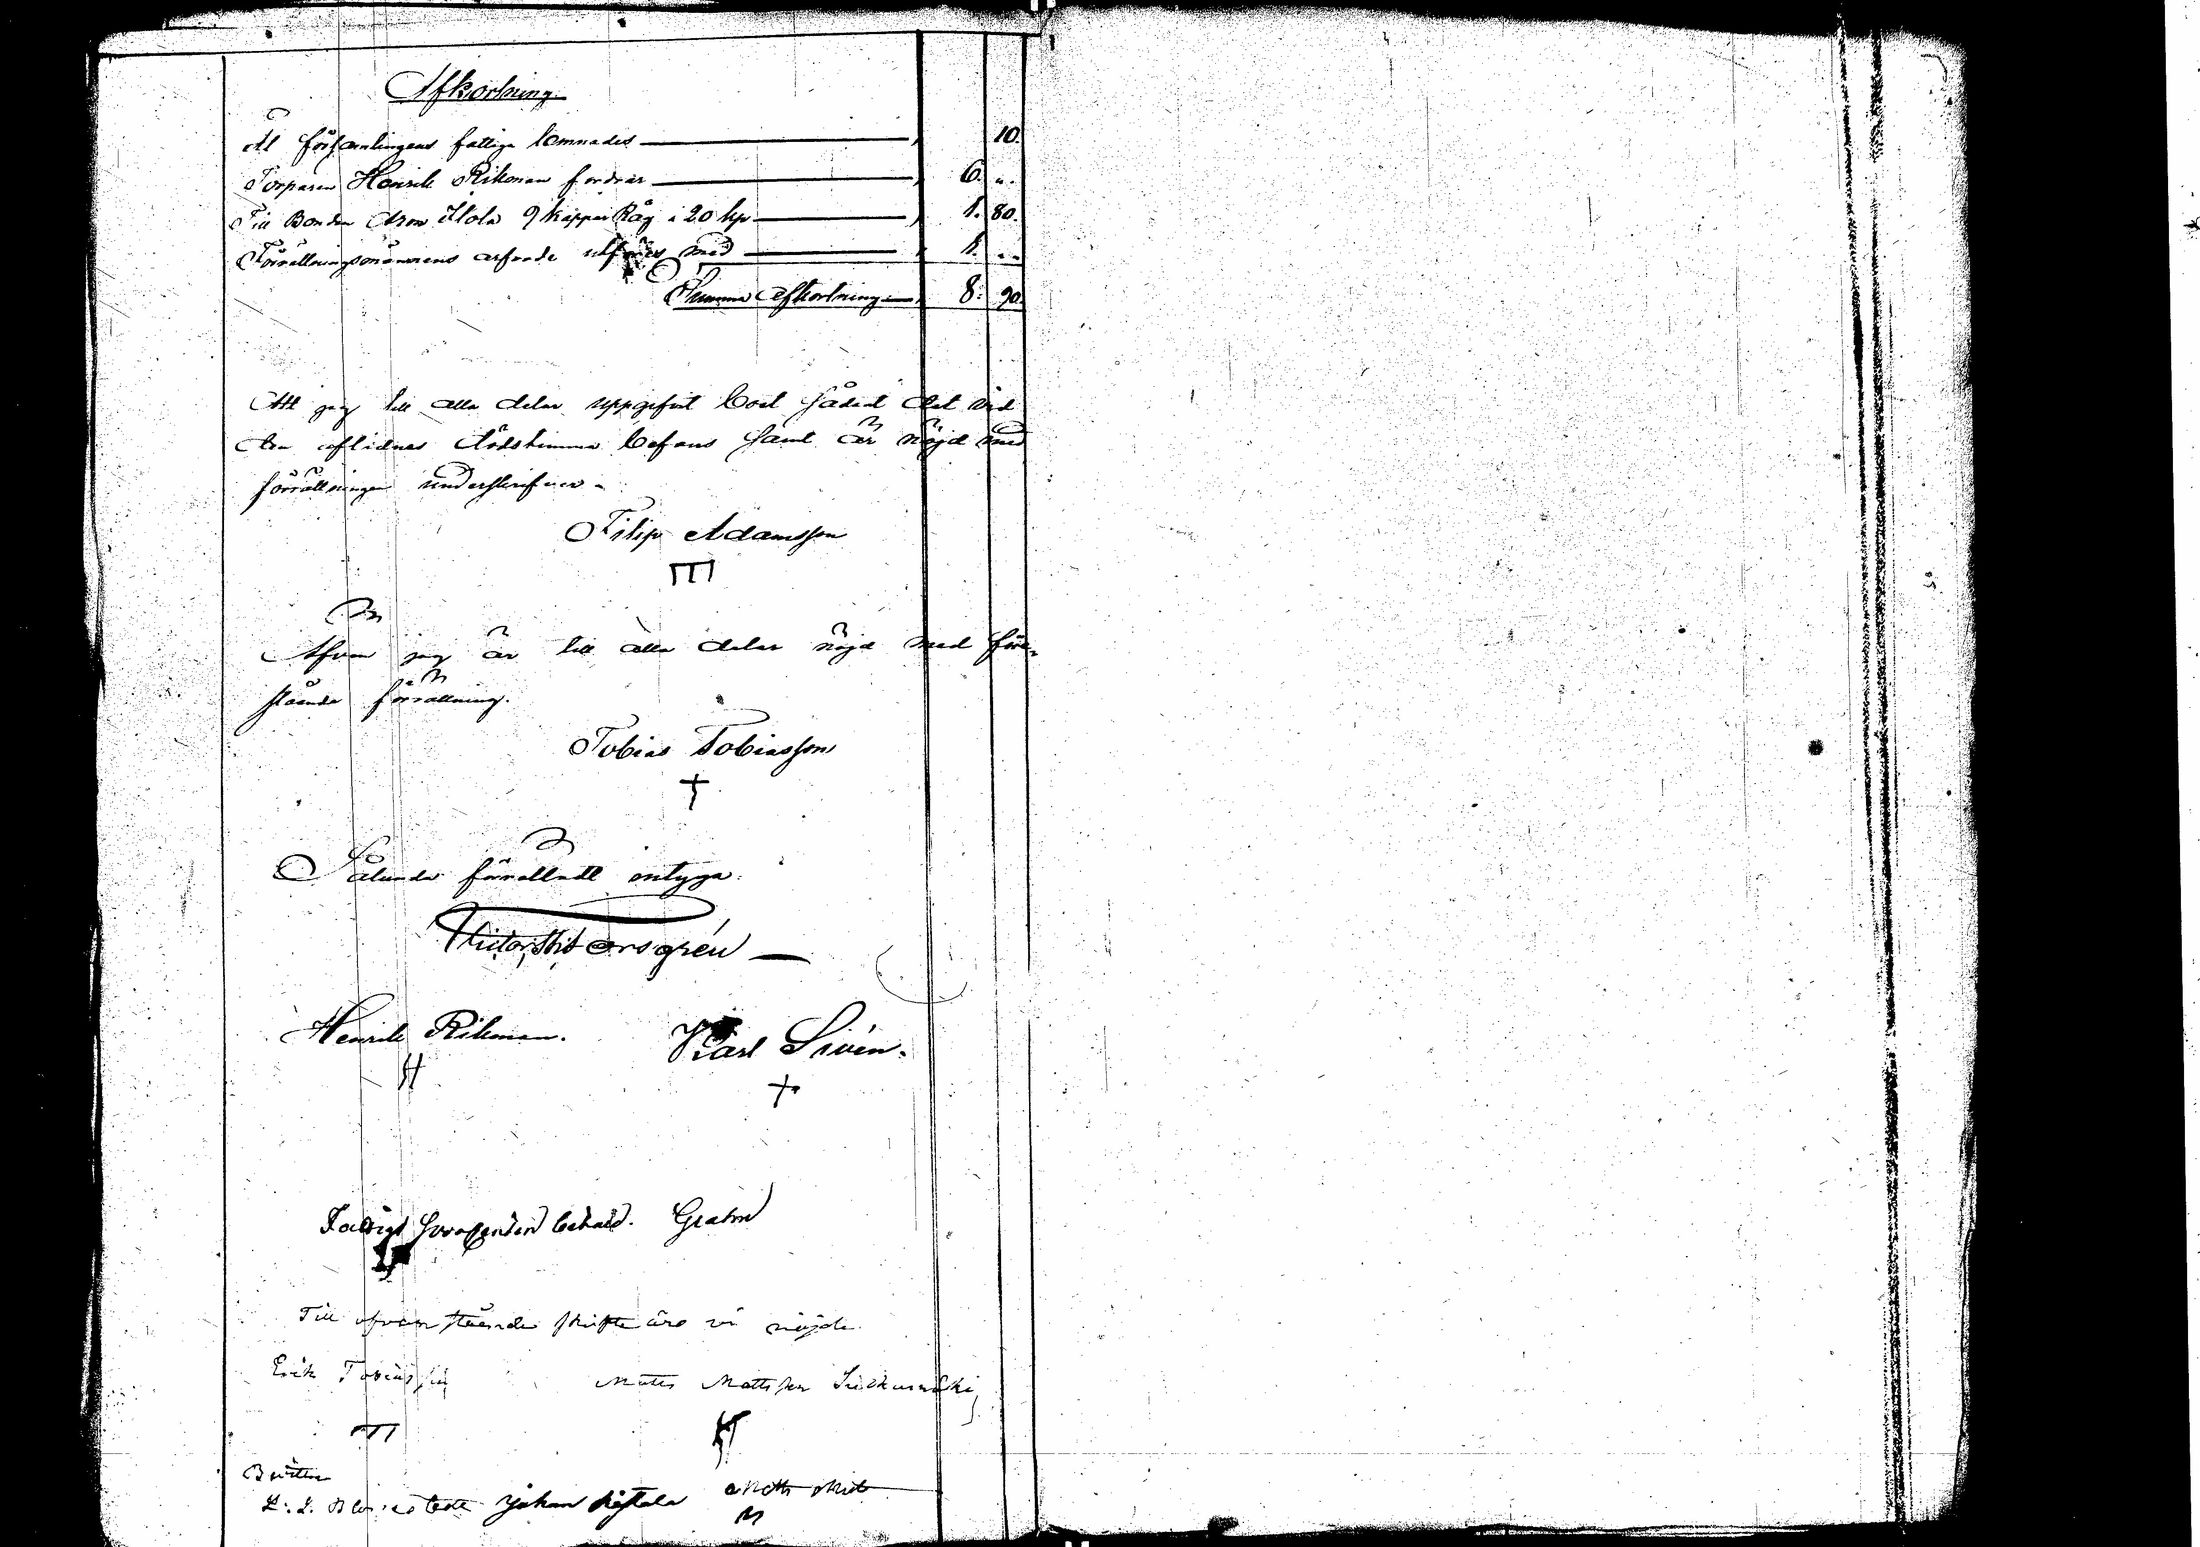 Afkortning
Åt församlingens fattige lemnades 10.
Torparen Henrik Rikman fordrar 6. "
Till Bonden Aron Ilola 9 kappar Råg i 20 kp 1. 80.
Förrättningsmännens arfvode utföres med 1. "
Summa Afkortning 8: 90.
Att jag till alla delar uppgifvit boet sådant det vid
den aflidnes dödstimma befans samt är nöjd med
förrättningen underskrifver.
Filip Adamsson
Äfven jag är till alla delar nöjd med före-
stående förrättning.
Tobias Tobiasson
Sålunda förrättadt intyga:
Henrik Rikman. Karl Sivén.
Fattigt bekald. Grahn
Till ofvanstående skifte äro vi nöjde
Erik Tobiasson Matts Mattsson
Johan